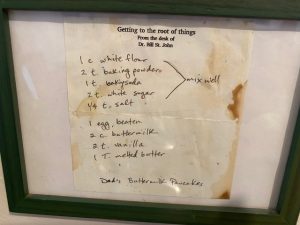 Getting to the root of things
From the desk of
Dr. Bill St. John
1 c. white flour
2 t. baking powders
1 t. baking soda
2 t. white sugar
1/4 t. salt
mix well
1 egg, beaten
2 c. buttermilk
2 t. vanilla
1 T. melted butter
Dad's Buttermilk Pancakes